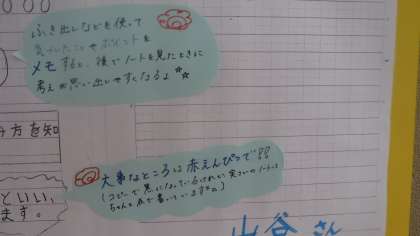 ふき出しなどを使って
気づいたことやポイントを
メモすると、後でノートを見たときに
考えが思い出しやすくなるよ
方を知
といい、
ます。
大事なところは赤えんぴつで!!
(コピーで黒になっているけれど実さいのノートは
ちゃんと赤で書いています)
山谷さん